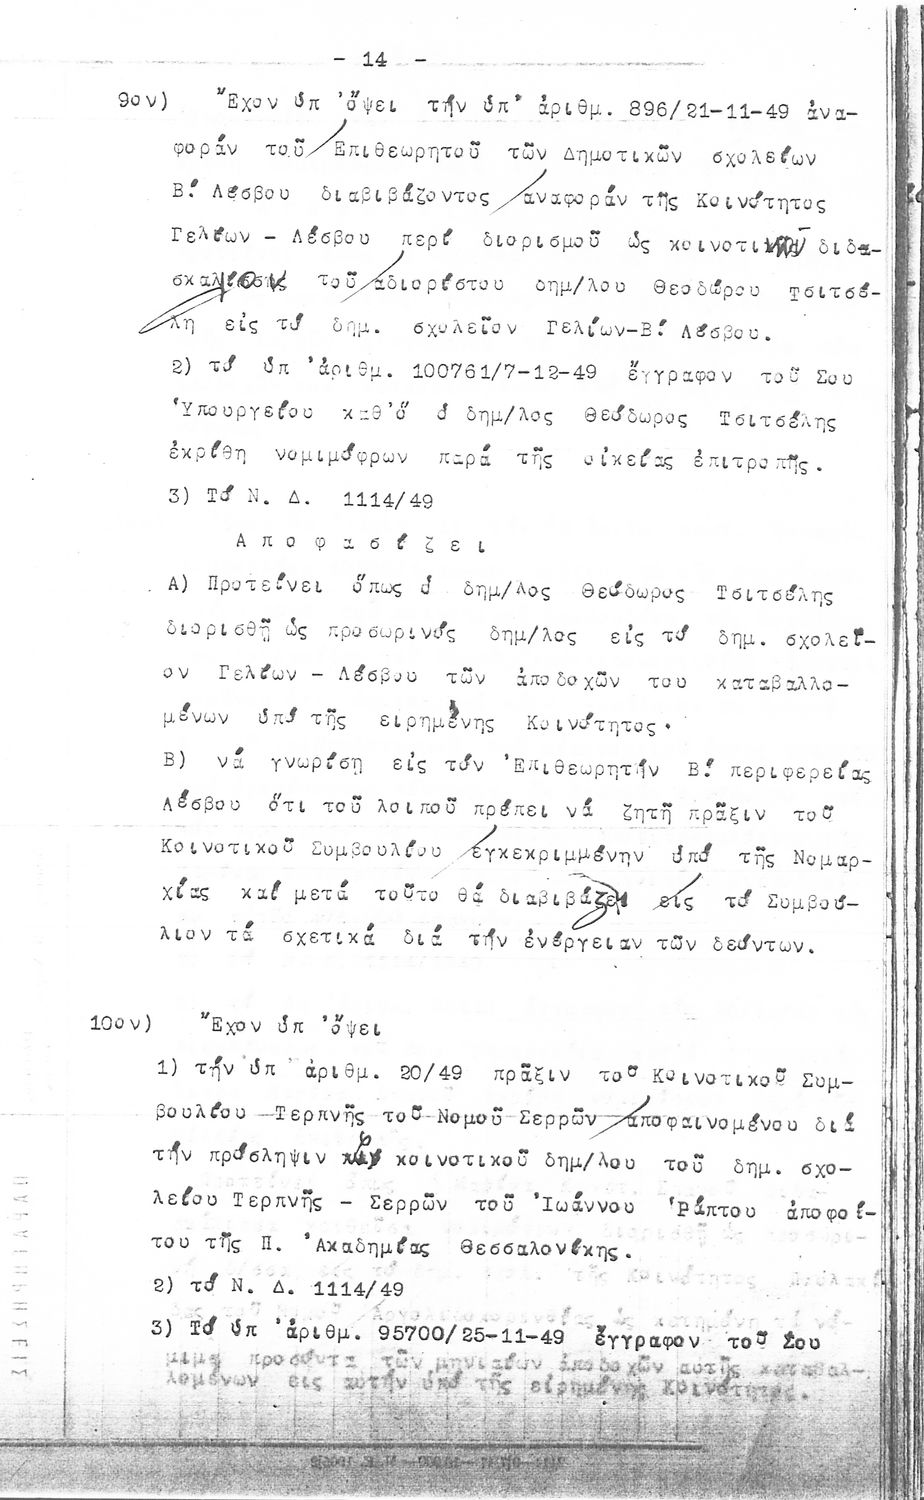 - 14 -
9ον) Ἔχον ὑπ᾽ὄψει τήν ὑπ᾽ ἀριθμ. 896/21-11-49 ἀνα-
φοράν τοῦ Ἐπιθεωρητοῦ τῶν Δημοτικῶν σχολείων
Β΄ Λέσβου διαβιβάζοντος ἀναφοράν τῆς Κοινότητος
Γελίων - Λέσβου περί διορισμοῦ ὡς κοινοτι διδα-
σκαλ τοῦ ἀδιορίστου δημ/λου Θεοδώρου Τσιτσέ-
λη εἰς τό δημ. σχολεῖον Γελίων-Β΄ Λέσβου.
2) τό ὑπ᾽ἀριθμ. 100761/7-12-49 ἔγγραφον τοῦ Σου
Ὑπουργείου καθ᾽ὅ ὁ δημ/λος Θεόδωρος Τσιτσέλης
ἐκρίθη νομιμόφρων παρά τῆς οἰκείας ἐπιτροπῆς.
3) Τό Ν. Δ. 1114/49
Α π ο φ α σ ί ζ ε ι
Α) Προτείνει ὅπως ὁ δημ/λος Θεόδωρος Τσιτσέλης
διορισθῇ ὡς προσωρινός δημ/λος εἰς τό δημ. σχολεῖ-
ον Γελίων - Λέσβου τῶν ἀποδοχῶν του καταβαλλο-
μένων ὑπό τῆς εἰρημένης Κοινότητος.
Β) νά γνωρίση εἰς τόν Ἐπιθεωρητήν Β΄ περιφερείας
Λέσβου ὅτι τοῦ λοιποῦ πρέπει νά ζητῇ πρᾶξιν τοῦ
Κοινοτικοῦ Συμβουλίου ἐγκεκριμμένην ὑπό τῆς Νομαρ-
χίας καί μετά τοῦτο θά διαβιβάζει εἰς τό Συμβού-
λιον τά σχετικά διά τήν ἐνέργειαν τῶν δεόντων.
10ον) Ἔχον ὑπ᾽ὄψει
1) τήν ὑπ᾽ ἀριθμ. 20/49 πρᾶξιν τοῦ Κοινοτικοῦ Συμ-
βουλίου Τερπνῆς τοῦ Νομοῦ Σερρῶν ἀποφαινομένου διά
τήν πρόσληψιν κοινοτικοῦ δημ/λου τοῦ δημ. σχο-
λείου Τερπνῆς - Σερρῶν τοῦ Ἰωάννου Ῥάπτου ἀποφοί-
του τῆς Π. Ἀκαδημίας Θεσσαλονίκης.
2) τό Ν. Δ. 1114/49
3) Τό ὑπ᾽ἀριθμ. 95700/25-11-49 ἔγγραφον τοῦ Σου
μιμα προσόντα τῶν μηνιαίων ἀποδοχῶν αὐτῆς καταβαλ-
λομένων εἰς αὐτήν ὑπό τῆς εἰρημένης Κοινότητος.